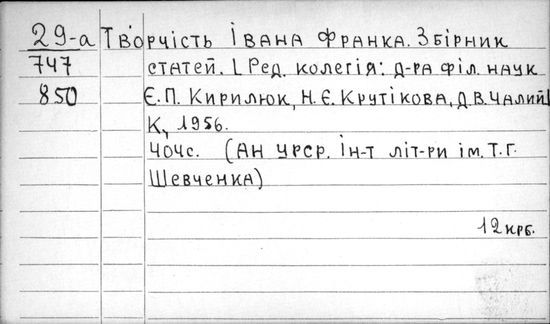 29-а Творчість Івана Франка. Збірник
747 статей. [Ред. колегія: д-ра філ. наук
850 Є.П. Кирилюк, Н.Є. Крутікова, Д.В. Чалий]
К., 1956.
404с. (АН УРСР. Ін-т літ-ри ім. Т.Г.
Шевченка)
12 крб.